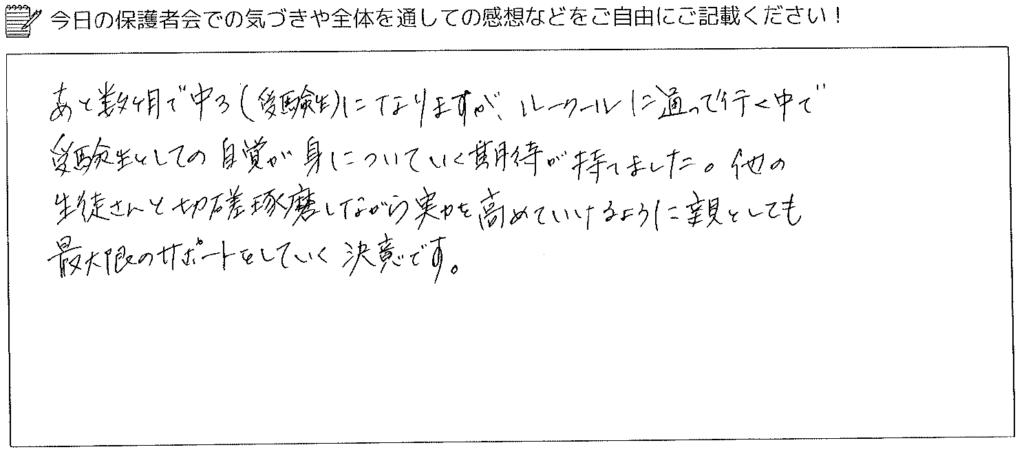 今日の保護者会での気づきや全体を通しての感想などをご自由にご記載ください！
あと数ヶ月で中3(受験生)になりますが、ルークールに通って行く中で
受験生としての自覚が身についていく期待が持てました。他の
生徒さんと切磋琢磨しながら実力を高めていけるように親としても
最大限のサポートをしていく決意です。